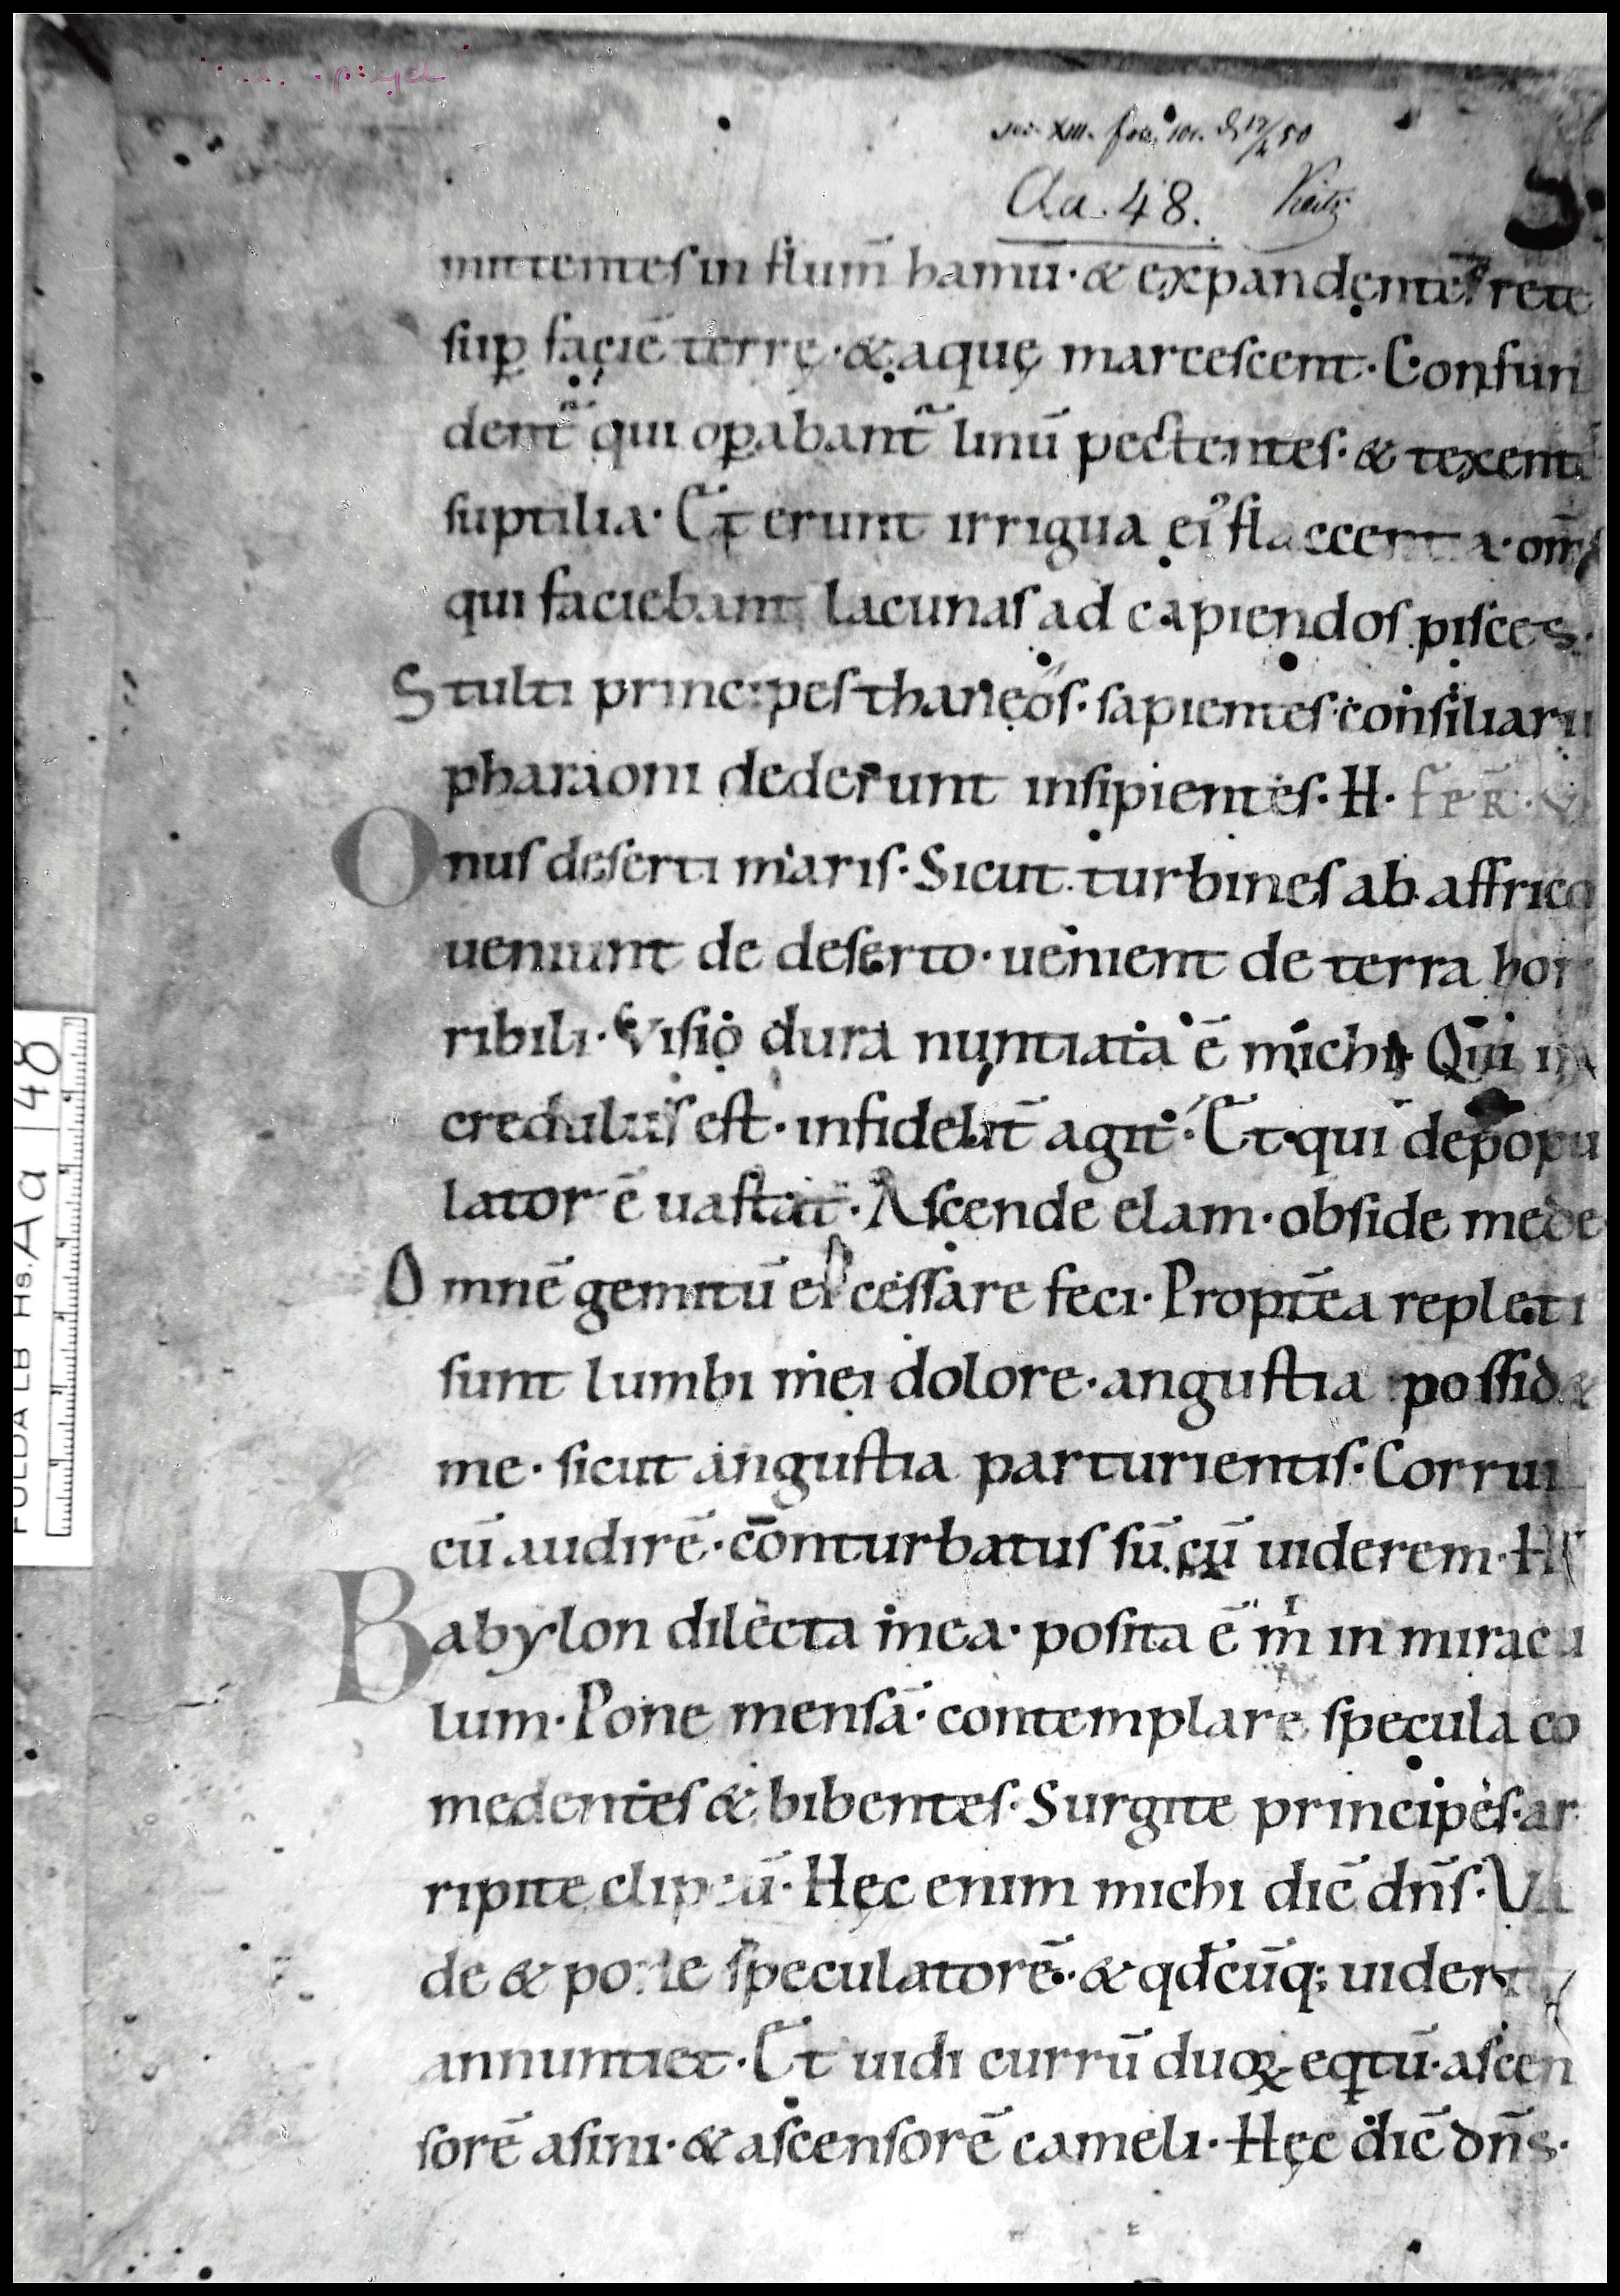 Aa. 48.
mittentes in flum̄ hamū· & expandentes rete
suꝑ faciē terrę· & aquę marcescent· Confun
dent᷑ qui oꝑabant᷑ linū pectentes· & texentes
suptilia· Et erunt irrigua eiꝰ flaccentia· om̄s
qui faciebant lacunas ad capiendos pisces·
Stulti principes thaneos· sapientes consiliarii
pharaoni dederunt insipientes· H· FER̄· VI
Onus deserti maris· Sicut turbines ab affrico
ueniunt de deserto· uenient de terra hor
ribili· Visio dura nuntiata ē michi· Qui in
credulus est· infidelit̄ agit· Et qui depopu
lator ē uastat· Ascende elam· obside mede
Omnē gemitū eiꝰ cessare feci· Propt̄ea repleti
sunt lumbi mei dolore· angustia possid&
me· sicut angustia parturientis· Corrui
cū audirē· conturbatus sū cū uiderem· H
Babylon dilecta mea· posita ē m̄ in miracu
lum· Pone mensā· contemplare specula co
medentes & bibentes· Surgite principes· ar
ripite clipeū· Hęc enim michi dic̄ dn̄s· Va
de & pone speculatorē· & qđcūq; uiderit
annuntiet· Et uidi currū duoꝝ eqtū· ascen
sorē asini· & ascensorē cameli· Hęc dic̄ dn̄s·
FULDA LB Hs. Aa 48